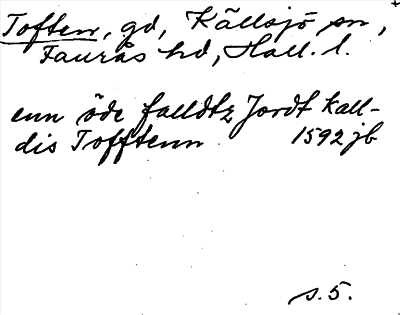 Toften, gd, Källsjö sn,
Faurås hd, Hall. l.
enn öde falldtz Jordt kall-
dis Tofftenn 1592 jb
s. 5.